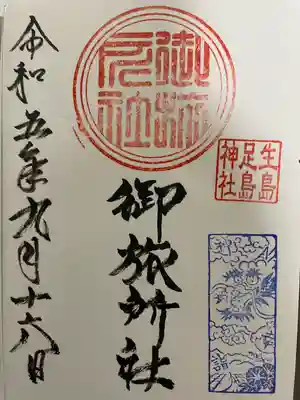 生島
足島
神社
御旅所社
令和五年九月十六日